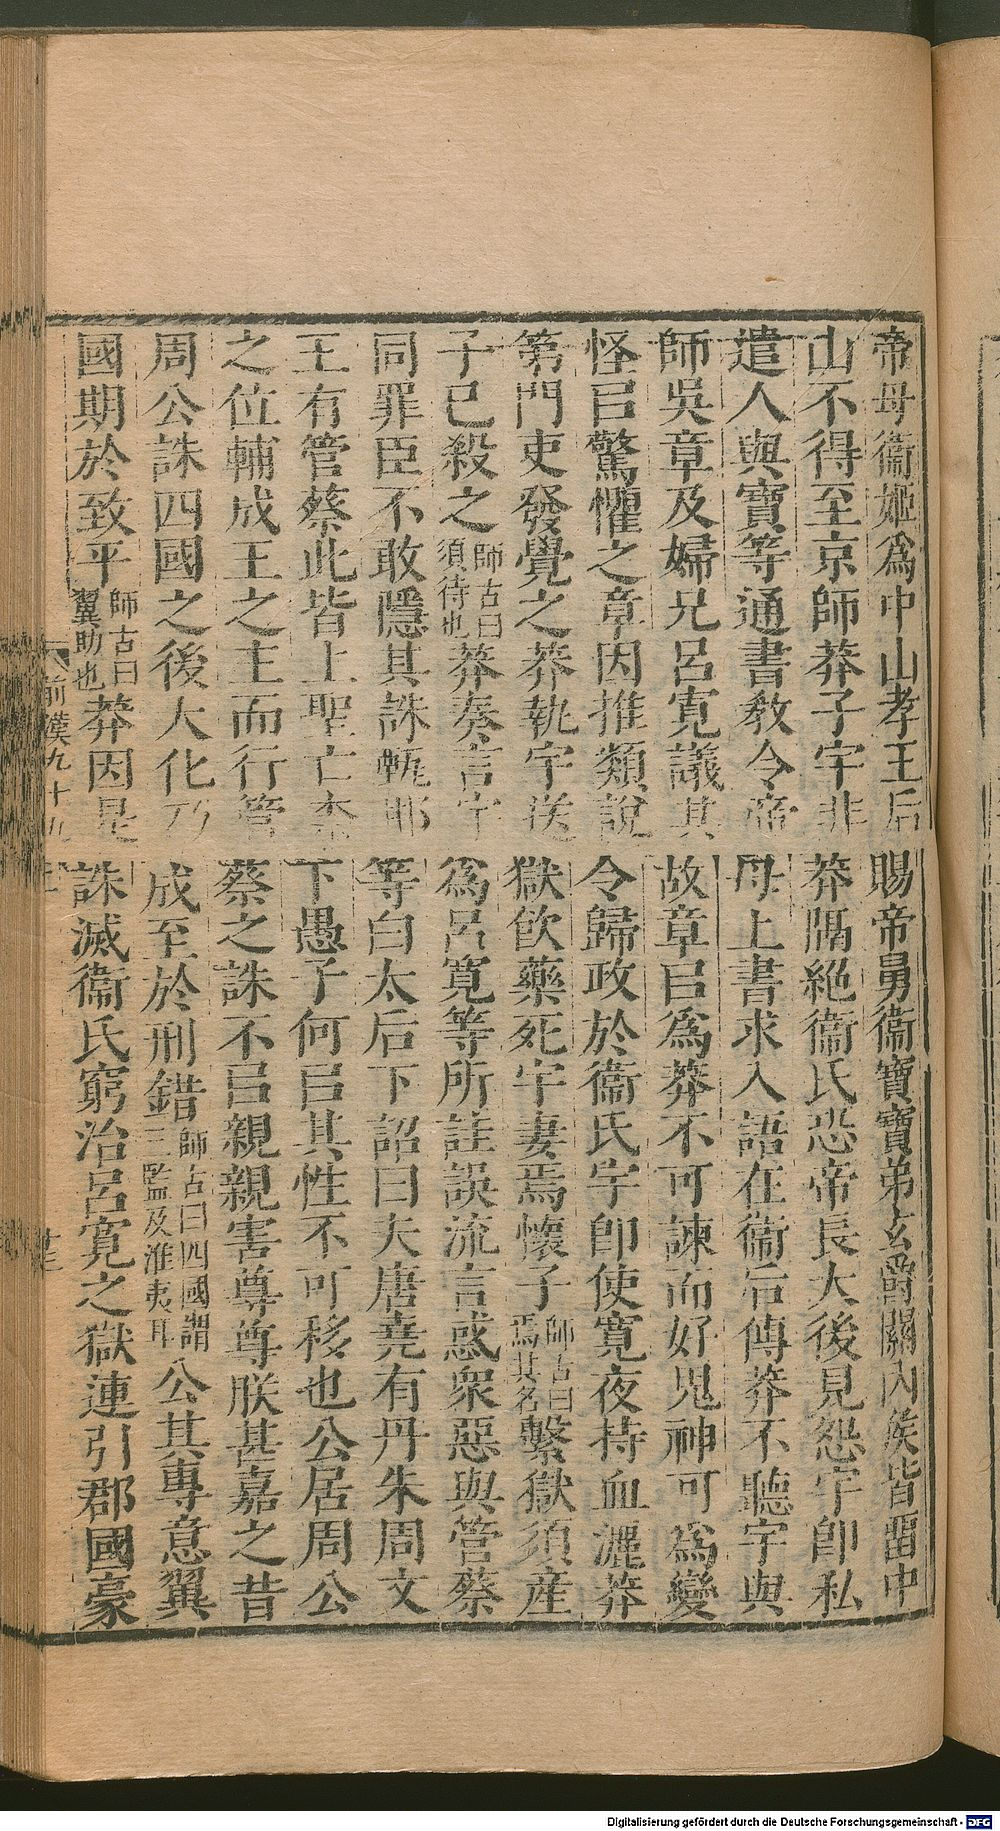 帝母衞姬爲中山孝王后賜帝舅衞寶寶弟玄爵關內侯皆畱中
山不得至京師莽子宇非莽隔絕衞氏恐帝長大後見怨宇卽私
遣人與寶等通書敎令帝母上書求入語在衞后傳莽不聽宇與
師吳章及婦兄呂寬議其故章㠯爲莽不可諫而好鬼神可爲變
怪㠯驚懼之章因推類說令歸政於衞氏宇卽使寬夜持血灑莽
第門吏發覺之莽執宇送獄飮藥死宇妻焉懷子師古曰焉其名繫獄須產
子已殺之師古曰須待也莽奏言宇爲呂寬等所詿誤流言惑衆惡與管蔡
同罪臣不敢隱其誅甄邯等白太后下詔曰夫唐堯有丹朱周文
王有管蔡此皆上聖亡柰下愚子何㠯其性不可移也公居周公
之位輔成王之主而行管蔡之誅不㠯親親害尊尊朕甚嘉之昔
周公誅四國之後大化乃成至於刑錯師古曰四國謂三監及淮夷耳公其專意翼
國期於致平師古曰翼助也莽因是誅滅衞氏窮治呂寬之獄連引郡國豪
前漢九十九上
Digitalisierung gefördert durch die Deutsche Forschungsgemeinschaft - DFG